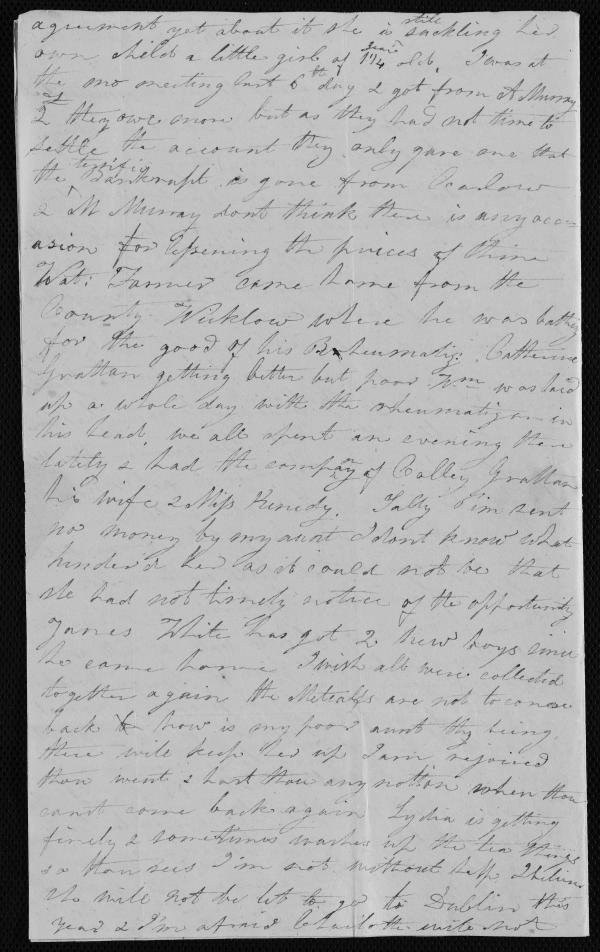 agreement yet about it she is still suckling her
own child a little girl of 1 1/4 years old. I was at
the mo meeting last 6th day & got from A Murray
they owe more but as they had not time to
settle the account they only gave me that
the terrific Bankrupt is gone from Carlow
& M Murray dont think there is any occ
asion for lessening the prices of thine
Wat: Farmer came home from the
County Wicklow where he was bathing
for the good of his Rheumatiz: Catherine
Grattan getting better but poor Wm was laid
up a whole day with the rheumatiz in
his head, we all spent an evening there
lately & had the company of Colley Grattan
his wife & Miss Kenedy. Sally Sim sent
no money by my aunt I dont know what
hinder'd her as it could not be that
she had not timely notice of the opportunity
James White has got 2 new boys since
he came home I wish all were collected
together again the Metcalfs are not to come
back how is my poor aunt thy being
there will keep her up I am rejoiced
thou went & hast thou any notion when thou
canst come back again Lydia is getting
finely & sometimes washes up the tea things
so thou sees I'm not without help I believe
she will not be let to go to Dublin this
year & I'm afraid Charlotte will not